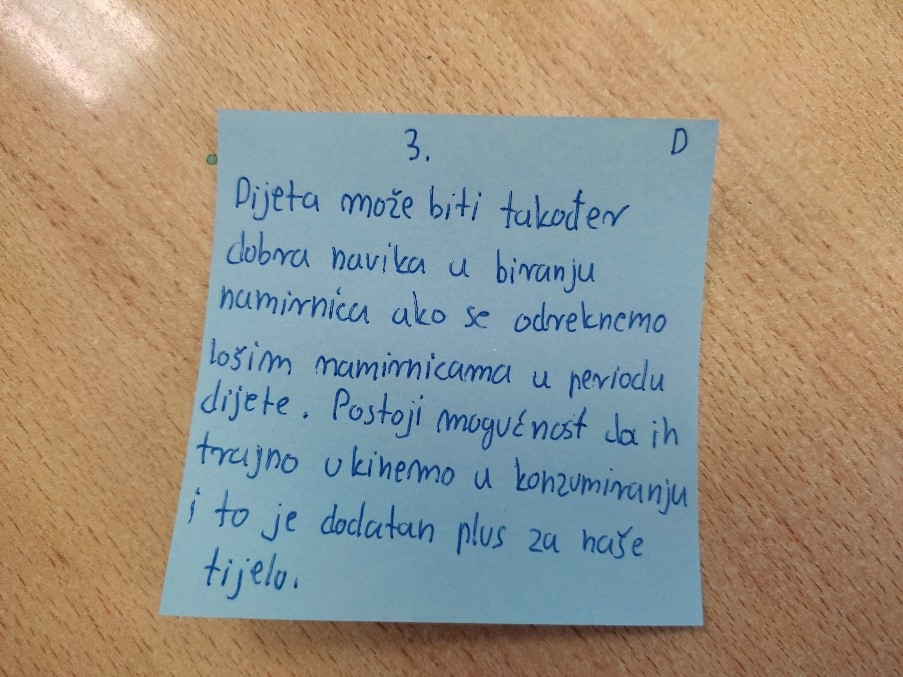 3. D
Dijeta može biti također
dobra navika u biranju
namirnica ako se odreknemo
lošim namirnicama u periodu
dijete. Postoji mogućnost da ih
trajno ukinemo u konzumiranju
i to je dodatan plus za naše
tijelo.